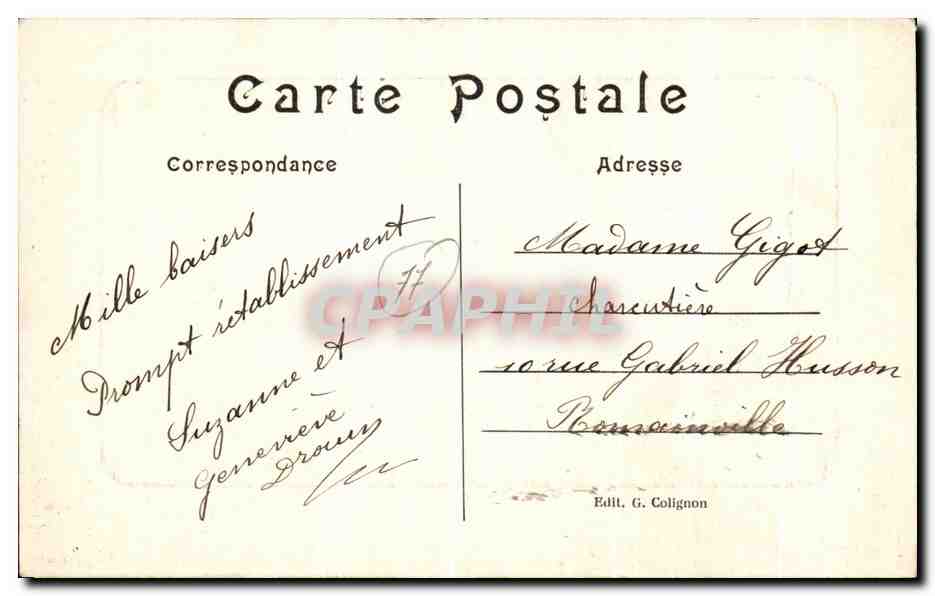 Carte Postale
Correspondance
Mille baisers
Prompt rétablissement
Suzanne et
Geneviève
Drouin
77
Adresse
Madame Gigot
Charcutière
10 rue Gabriel Husson
Romainville
Edit. G. Colignon
CPAPHIL